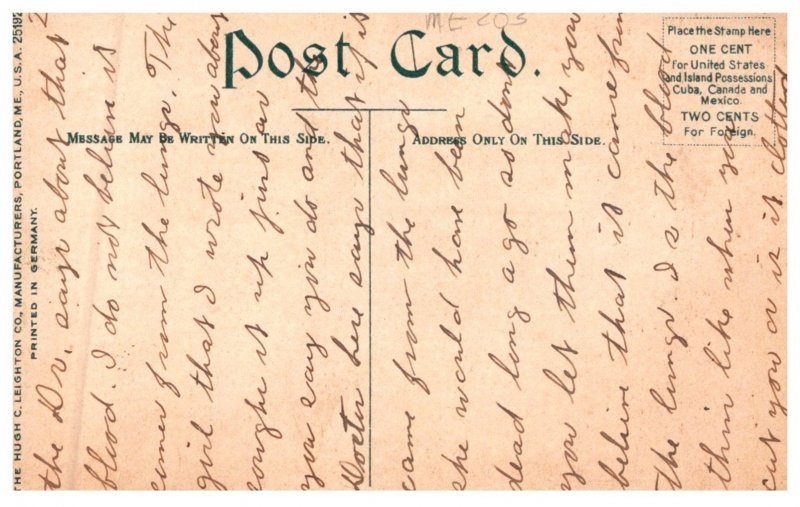 ME COS
Post Card.
Place the Stamp Here
ONE CENT
for United States
and Island Possessions
Cuba, Canada and
Mexico.
TWO CENTS
For Foreign.
MESSAGE MAY BE WRITTEN ON THIS SIDE.
ADDRESS ONLY ON THIS SIDE.
THE HUGH C. LEIGHTON CO., MANUFACTURERS, PORTLAND, ME., U.S.A. 25192
PRINTED IN GERMANY.
the Dr. says about that
blood. I do not believe it
comes from the lungs. The
girl that I wrote you about
coughs it up just as
you say you do and the
Doctor here says that if it
came from the lungs
she would have been
dead long ago so dont
you let them make you
believe that it came from
the lungs. Is the blood
thin like when you
cut you or is it clotted